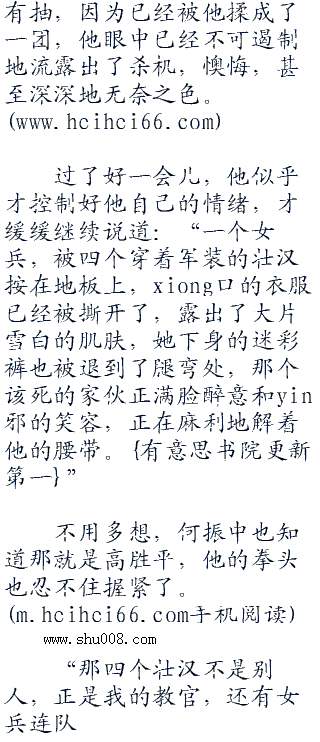 有抽，因为已经被他揉成了
一团，他眼中已经不可遏制
地流露出了杀机，懊悔，甚
至深深地无奈之色。
(www.hcihci66.com)
过了好一会儿，他似乎
才控制好他自己的情绪，才
缓缓继续说道：“一个女
兵，被四个穿着军装的壮汉
按在地板上，xiong口的衣服
已经被撕开了，露出了大片
雪白的肌肤，她下身的迷彩
裤也被退到了腿弯处，那个
该死的家伙正满脸醉意和yin
邪的笑容，正在麻利地解着
他的腰带。{有意思书院更新
第一}”
不用多想，何振中也知
道那就是高胜平，他的拳头
也忍不住握紧了。
(m.hcihci66.com手机阅读)
www.shu008.com
“那四个壮汉不是别
人，正是我的教官，还有女
兵连队